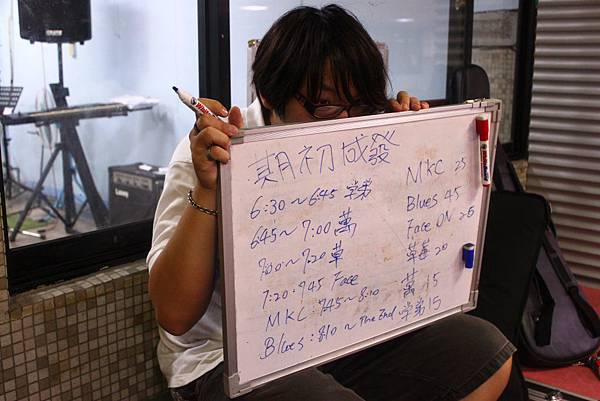 期初成發
6:30~6:45 學弟
6:45~7:00 萬
7:00~7:20 草
7:20~7:45 Face
MKC: 7:45~8:10
Blues: 8:10~The End
MKC 25
Blues 45
Face ON 25
草莓 20
萬 15
學弟 15